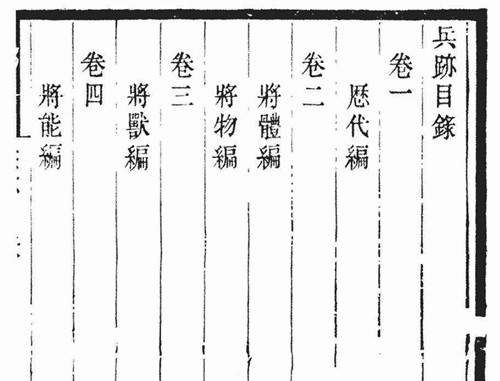 兵跡目錄
卷一
歷代編
卷二
將體編
將物編
卷三
將獸編
卷四
將能編